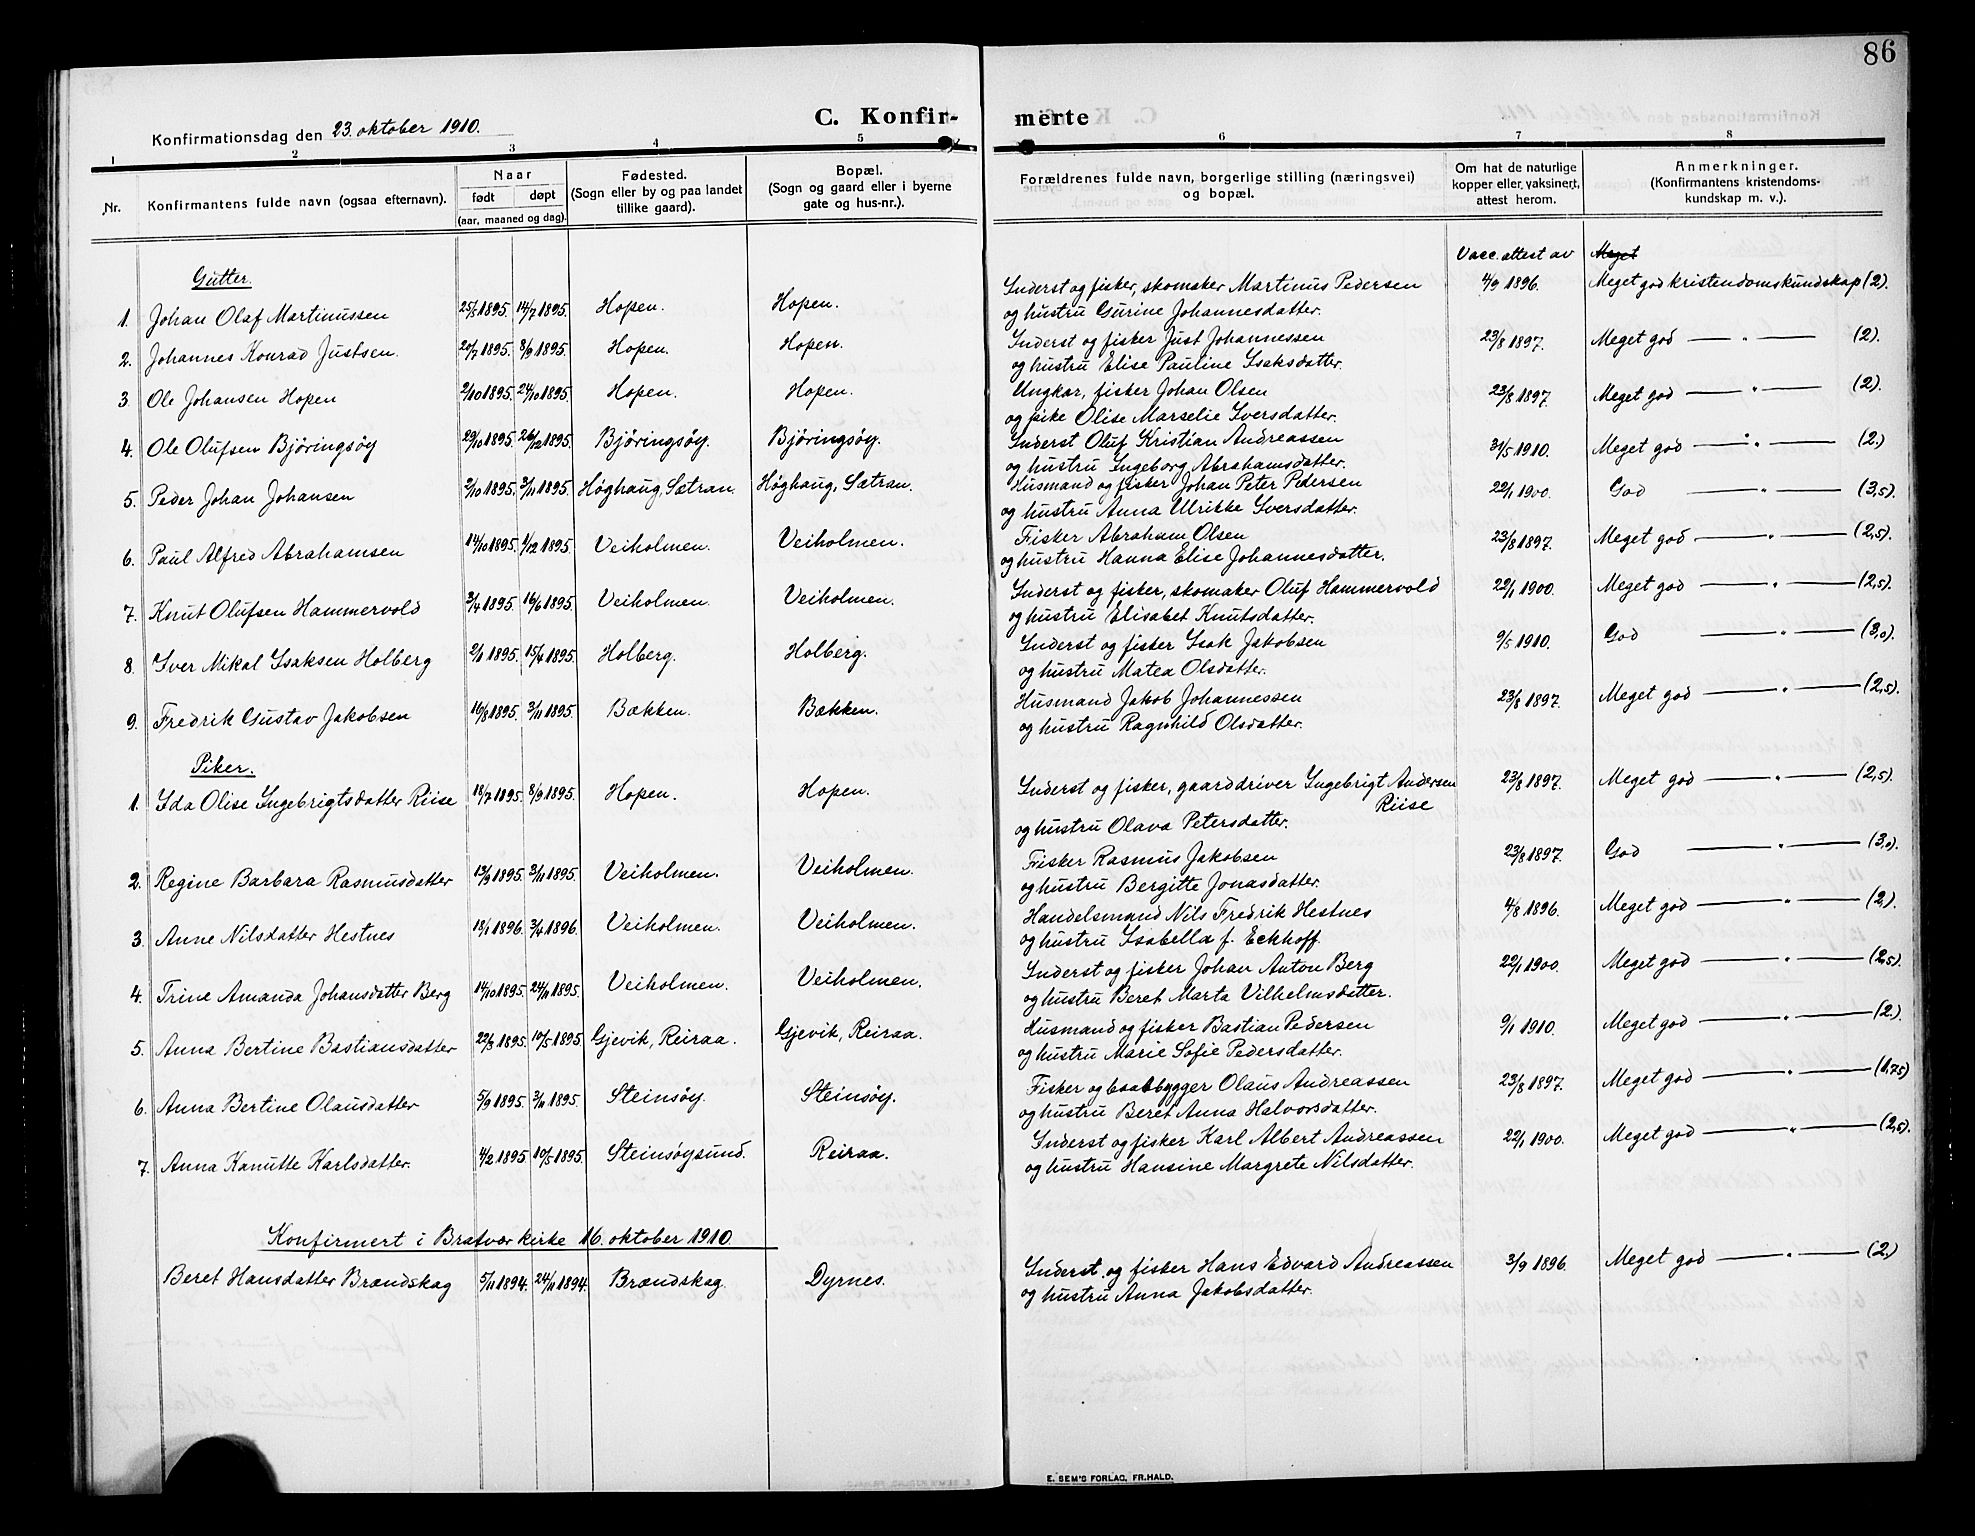 86
Konfirmationsdag den 23. oktober 1910.
C. Konfir-
merte
1 2 3 4 5 6 7 8
Nr.
Konfirmantens fulde navn (ogsaa efternavn).
Naar
født
døpt
(aar, maaned og dag).
Fødested.
(Sogn eller by og paa landet
tillike gaard).
Bopæl.
(Sogn og gaard eller i byerne
gate og hus-nr.).
Forældrenes fulde navn, borgerlige stilling (næringsvei)
og bopæl.
Om hat de naturlige
kopper eller, vaksinert,
attest herom.
Anmerkninger.
(Konfirmantens kristendoms-
kundskap m. v.).
Vacc. attest av Meget
Gutter.
1. Johan Olaf Martinussen 25/5 1895. 14/7 1895. Hopen. Hopen. Inderst og fisker, skomaker Martinus Pedersen 4/9 1896. Meget god kristendomskundskap (2).
og hustru Gurine Johannesdatter.
2. Johannes Konrad Justsen. 20/7 1895. 8/9 1895. Hopen. Hopen. Inderst og fisker Just Johannessen 23/8 1897. Meget god — " — (2).
og hustru Elise Pauline Isaksdatter.
3. Ole Johansen Hopen 2/10 1895. 24/10 1895. Hopen. Hopen. Ungkar, fisker Johan Olsen 23/8 1897. Meget god — " — (2).
og pike Olise Marselie Iversdatter.
4. Ole Olufsen Björingsöy 29/10 1895. 26/12 1895. Björingsöy. Björingsöy. Inderst Oluf Kristian Andreassen 31/5 1910. Meget god — " — (2.)
og hustru Ingeborg Abrahamsdatter.
5. Peder Johan Johansen 2/10 1895. 3/11 1895. Höghaug, Sætran. Höghaug, Sætran. Husmand og fisker Johan Peter Pedersen 22/1 1900. God — " — (3,5).
og hustru Anna Ulrikke Iversdatter.
6. Paul Alfred Abrahamsen 14/10 1895. 1/12 1895. Veiholmen. Veiholmen. Fisker Abraham Olsen 23/8 1897. Meget god — " — (2,5).
og hustru Hanna Elise Johannesdatter.
7. Knut Olufsen Hammervold 3/4 1895. 16/6 1895. Veiholmen. Veiholmen. Inderst og fisker, skomaker Oluf Hammervold 22/1 1900. Meget god — " — (2,5).
og hustru Elisabet Knutsdatter.
8. Iver Mikal Isaksen Holberg 2/1 1895. 15/4 1895. Holberg. Holberg. Inderst og fisker Isak Jakobsen 9/5 1910. God — " — (3,0).
og hustru Matea Olsdatter.
9. Fredrik Gustav Jakobsen 16/8 1895. 3/11 1895. Bækken. Bækken. Husmand Jakob Johannessen 23/8 1897. Meget god — " — (2,5).
og hustru Ragnhild Olsdatter.
Piker.
1. Ida Olise Ingebrigtsdatter Riise 18/7 1895. 8/9 1895. Hopen. Hopen. Inderst og fisker, gaarddriver Ingebrigt Andersen 23/8 1897. Meget god — " — (2,5).
Riise
og hustru Olava Petersdatter.
2. Regine Barbara Rasmusdatter 13/9 1895. 3/11 1895. Veiholmen. Veiholmen. Fisker Rasmus Jakobsen 23/8 1897. God — " — (3,0).
og hustru Bergitte Jonasdatter.
3. Anne Nilsdatter Hestnes 13/1 1896. 3/4 1896. Veiholmen. Veiholmen. Handelsmand Nils Fredrik Hestnes 4/8 1896. Meget god — " — (2,).
og hustru Isabella f. Eckhoff.
4. Trine Amanda Johansdatter Berg 14/10 1895. 24/11 1895. Veiholmen. Veiholmen. Inderst og fisker Johan Anton Berg 22/1 1900. Meget god — " — (2,5).
og hustru Beret Marta Vilhelmsdatter.
5. Anna Bertine Bastiansdatter 22/3 1895. 10/5 1895. Gjevik, Reiraa. Gjevik, Reiraa. Husmand og fisker Bastian Pedersen 9/1 1910. Meget god — " — (2.).
og hustru Marie Sofie Pedersdatter.
6. Anna Bertine Olausdatter 5/9 1895. 3/11 1895. Steinsöy. Steinsöy. Fisker og baatbygger Olaus Andreassen 23/8 1897. Meget god — " — (1,75)
og hustru Beret Anna Halvorsdatter.
7. Anna Kanutte Karlsdatter. 4/2 1895. 10/5 1895. Steinsöysund. Reiraa. Inderst og fisker Karl Albert Andreassen 22/1 1900. Meget god — " — (2,5).
og hustru Hansine Margrete Nilsdatter.
Konfirmert i Bratvær kirke 16. oktober 1910.
Beret Hansdatter Brændskag 5/11 1894. 24/11 1894. Brændskag. Dyrnes. Inderst og fisker Hans Edvard Andreassen 3/9 1896. Meget god — " — (2.)
og hustru Anna Jakobsdatter.
E. SEM'S FORLAG, FR.HALD.